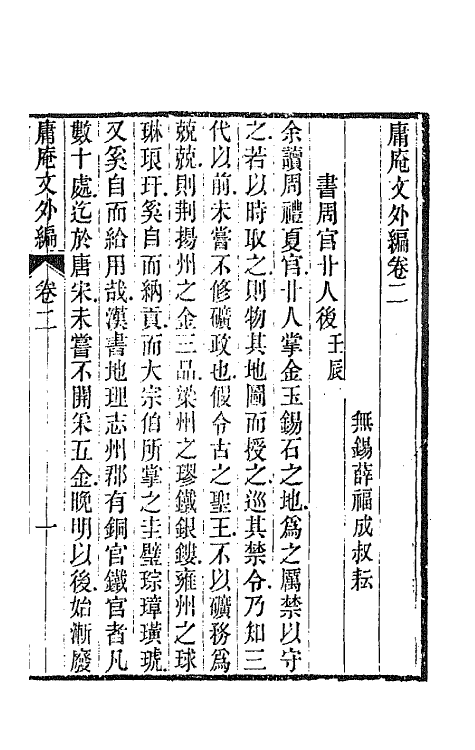 庸庵文外編卷二
無錫薛福成叔耘
書周官丱人後壬辰
余讀周禮夏官丱人掌金玉錫石之地爲之厲禁以守
之若以時取之則物其地圖而授之巡其禁令乃知三
代以前未嘗不修礦政也假令古之聖王不以礦務爲
兢兢則荆揚州之金三品梁州之璆鐵銀鏤雍州之球
琳琅玕奚自而納貢而大宗伯所掌之圭璧琮璋璜琥
又奚自而給用哉漢書地理志州郡有銅官鐵官者凡
數十處迄於唐宋未嘗不開采五金晚明以後始漸廢
庸庵文外編 卷二 一